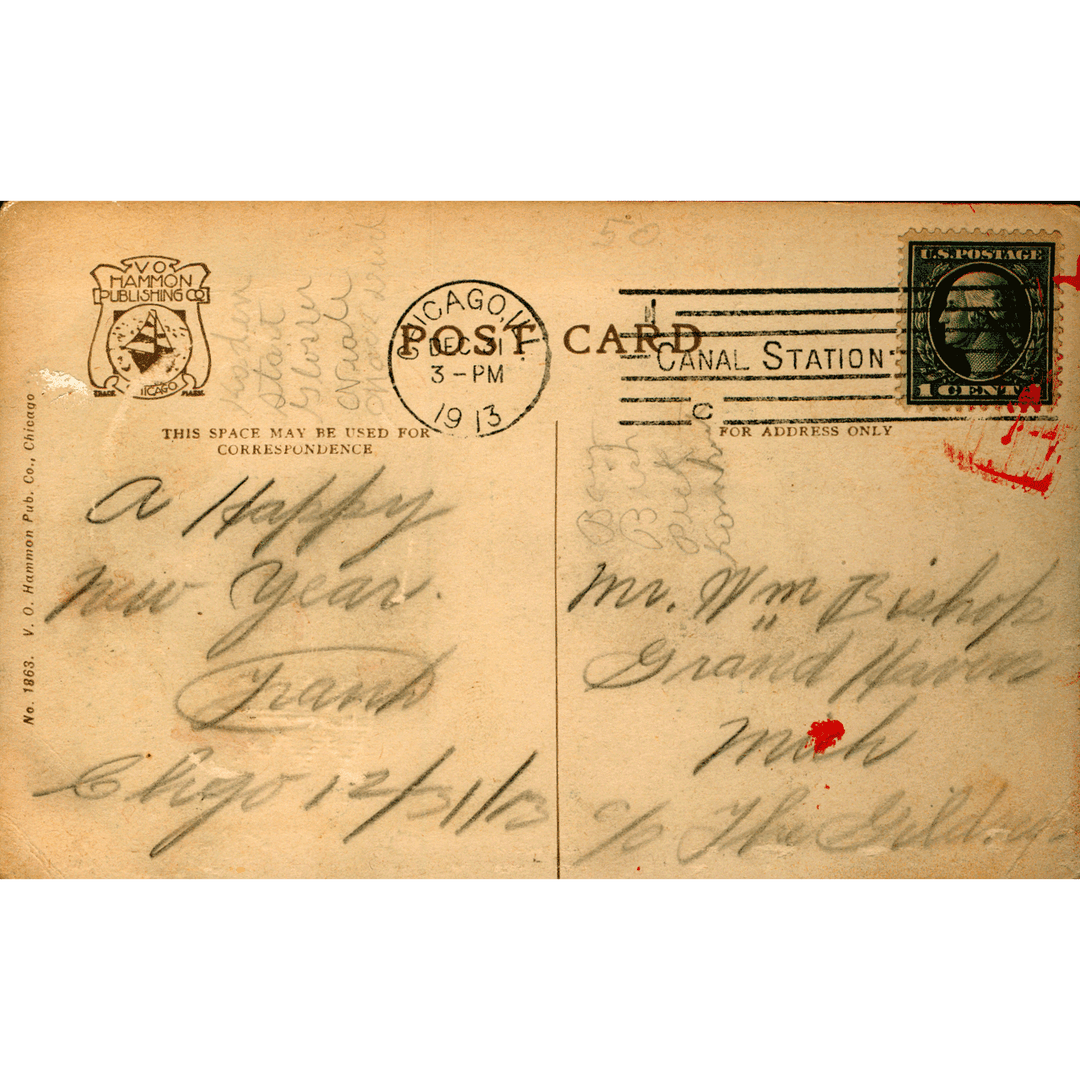 V O
HAMMON
PUBLISHING CO
CHICAGO
TRADE MARK
CHICAGO, ILL.
DEC 31
3-PM
1913
POST CARD
CANAL STATION
C
U.S. POSTAGE
1 CENT 1
THIS SPACE MAY BE USED FOR
CORRESPONDENCE
FOR ADDRESS ONLY
No. 1863. V. O. Hammon Pub. Co., Chicago
start
Glover
A Happy
New Year.
Frank
Chgo 12/31/13
Mr. Wm Bishop
Grand Haven
Mich
c/o The Gildner